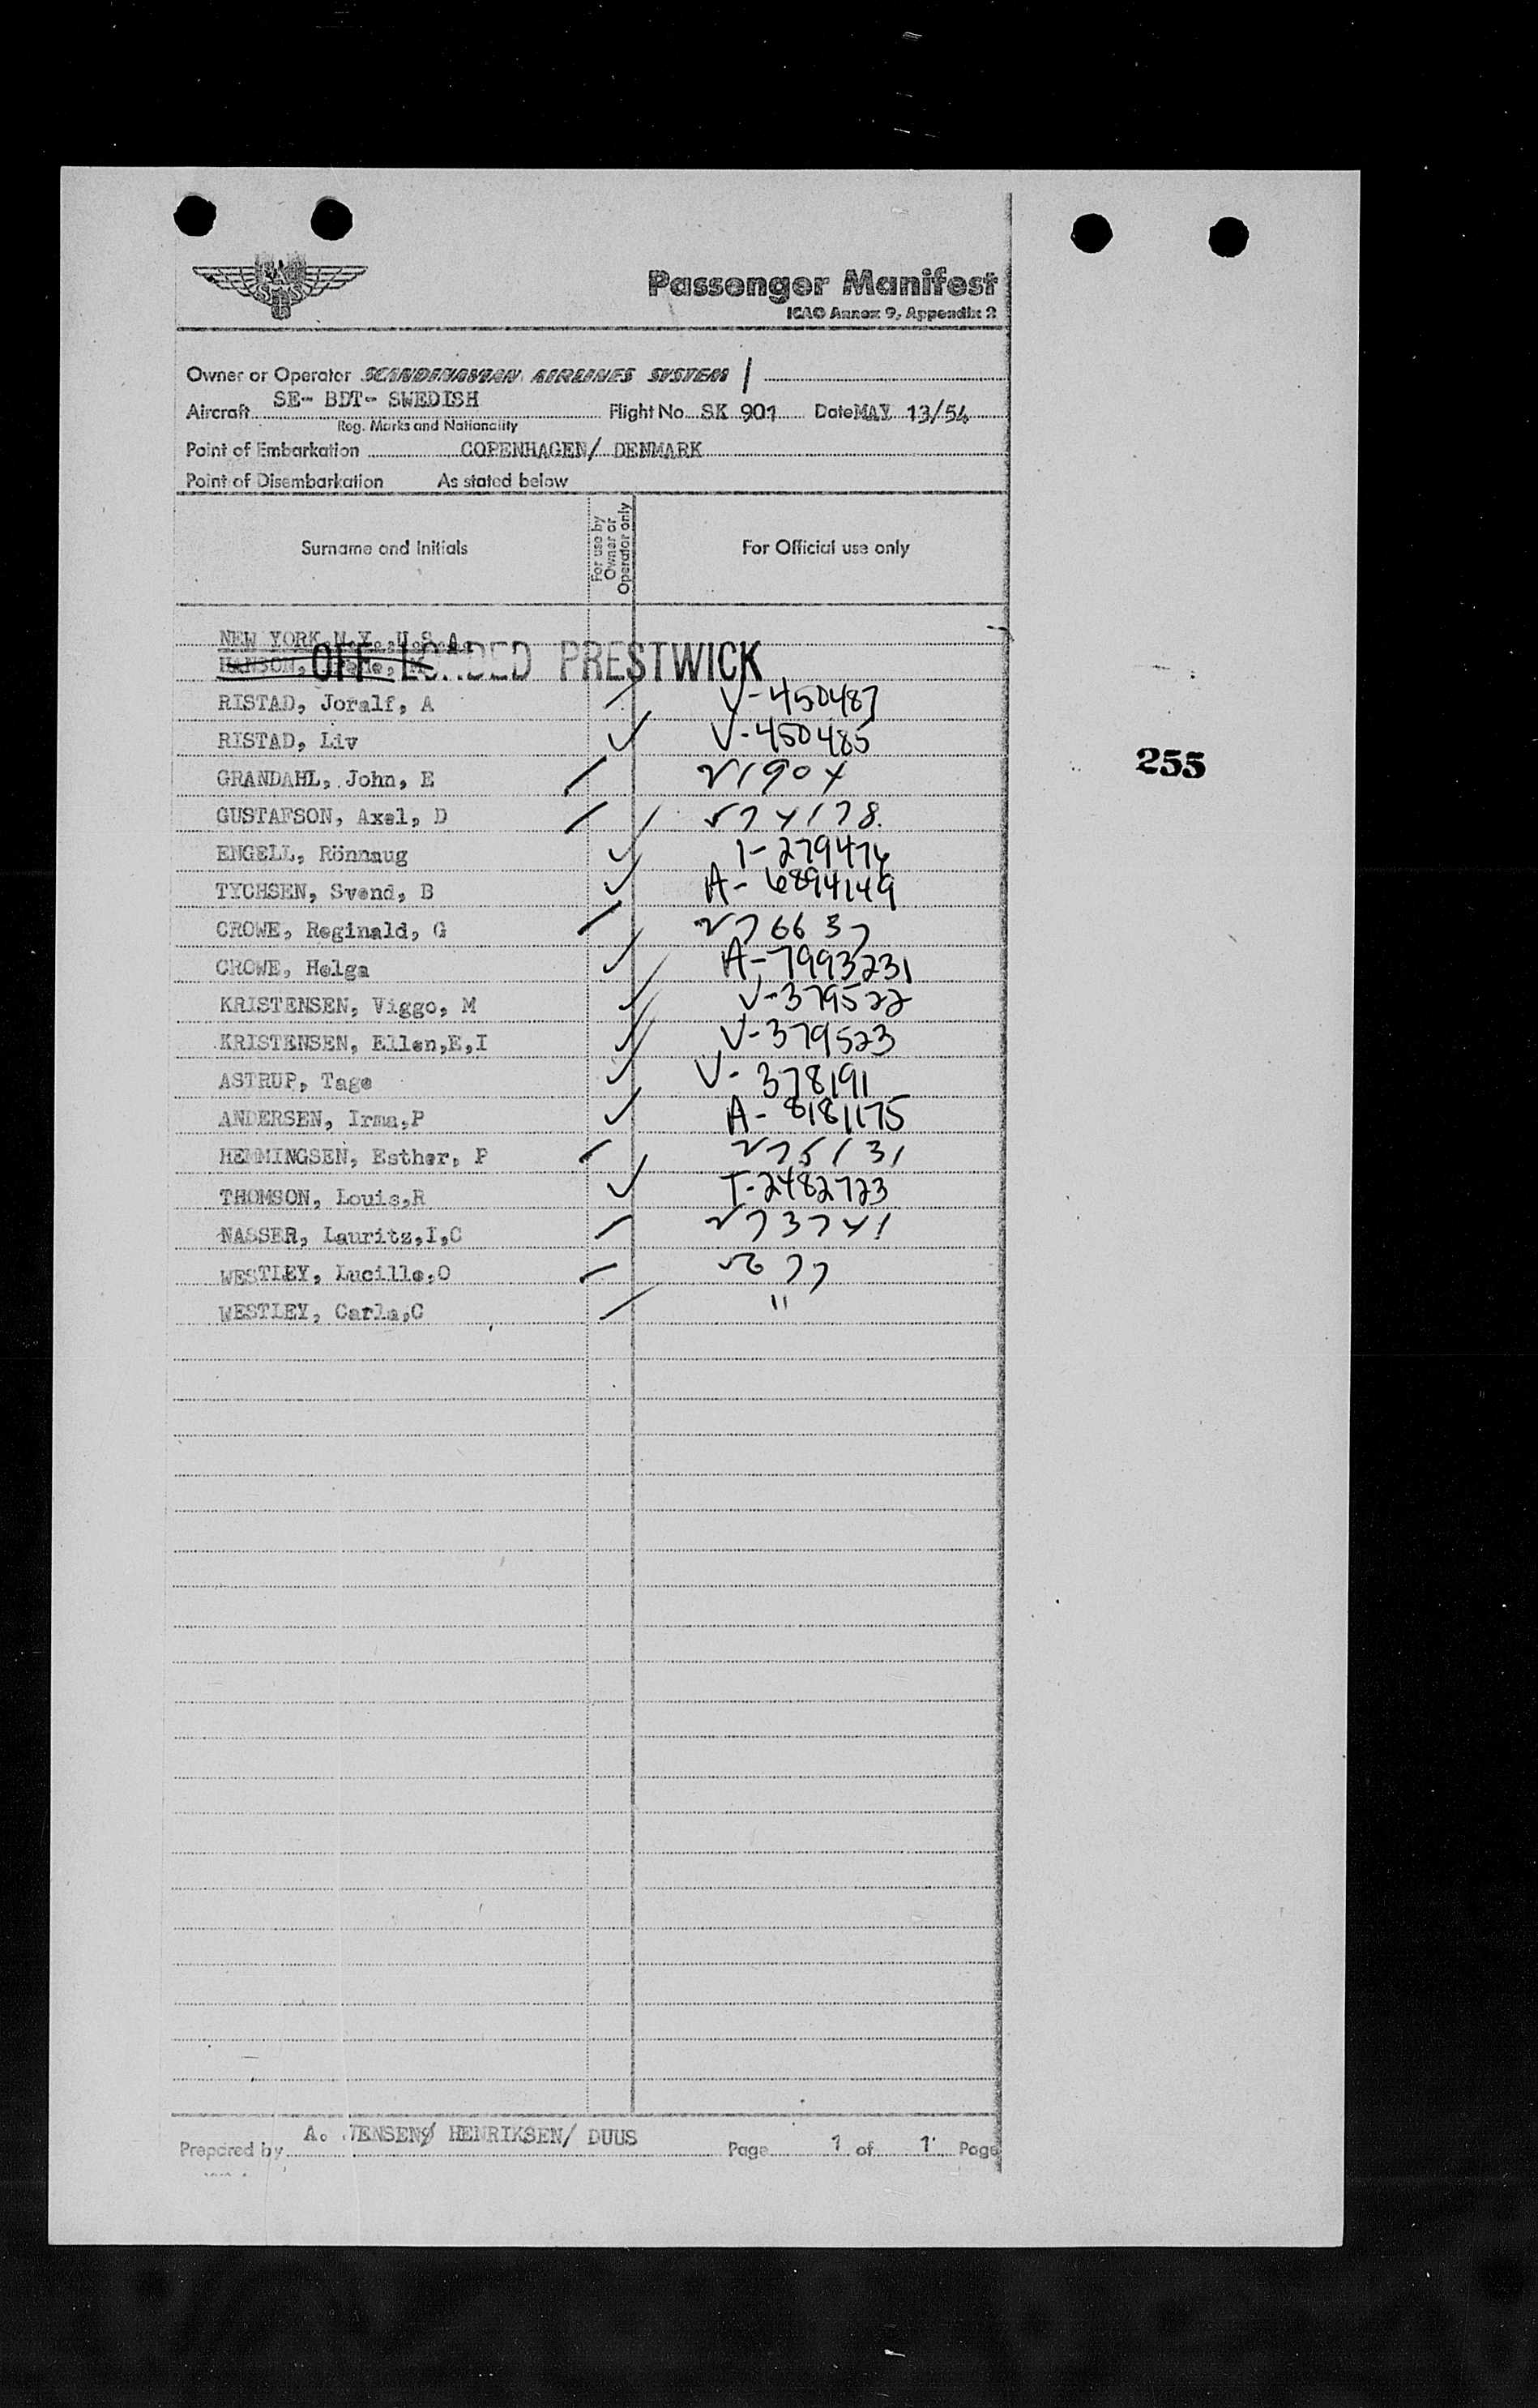 SAS
Passenger Manifest
ICAO Annex 9, Appendix 2
Owner or Operator SCANDINAVIAN AIRLINES SYSTEM
Aircraft SE- BDT- SWEDISH Flight No SK 901 Date MAY 13/54
Reg. Marks and Nationality
Point of Embarkation COPENHAGEN/ DENMARK
Point of Disembarkation As stated below
Surname and Initials For use by Owner or Operator only For Official use only
NEW YORK,N.Y.,U.S.A.
HANSON, OFF LOADED PRESTWICK
RISTAD, Joralf, A V-450487
RISTAD, Liv V-450485
GRANDAHL, John, E 21904
GUSTAFSON, Axel, D 574178
ENGELL, Rönnaug
TYCHSEN, Svend, B A-6894149
CROWE, Reginald, G 276637
CROWE, Helga A-7993231
KRISTENSEN, Viggo, M V-379522
KRISTENSEN, Ellen,E,I V-379523
ASTRUP, Tage V-378191
ANDERSEN, Irma,P A-8181175
HEMMINGSEN, Esther, P 275131
THOMSON, Louis,R T-2482723
NASSER, Lauritz,I,C 273741
WESTLEY, Lucille,O
WESTLEY, Carla,C "
255
Prepared by A. JENSEN/ HENRIKSEN/ DUUS Page 1 of 1 Page